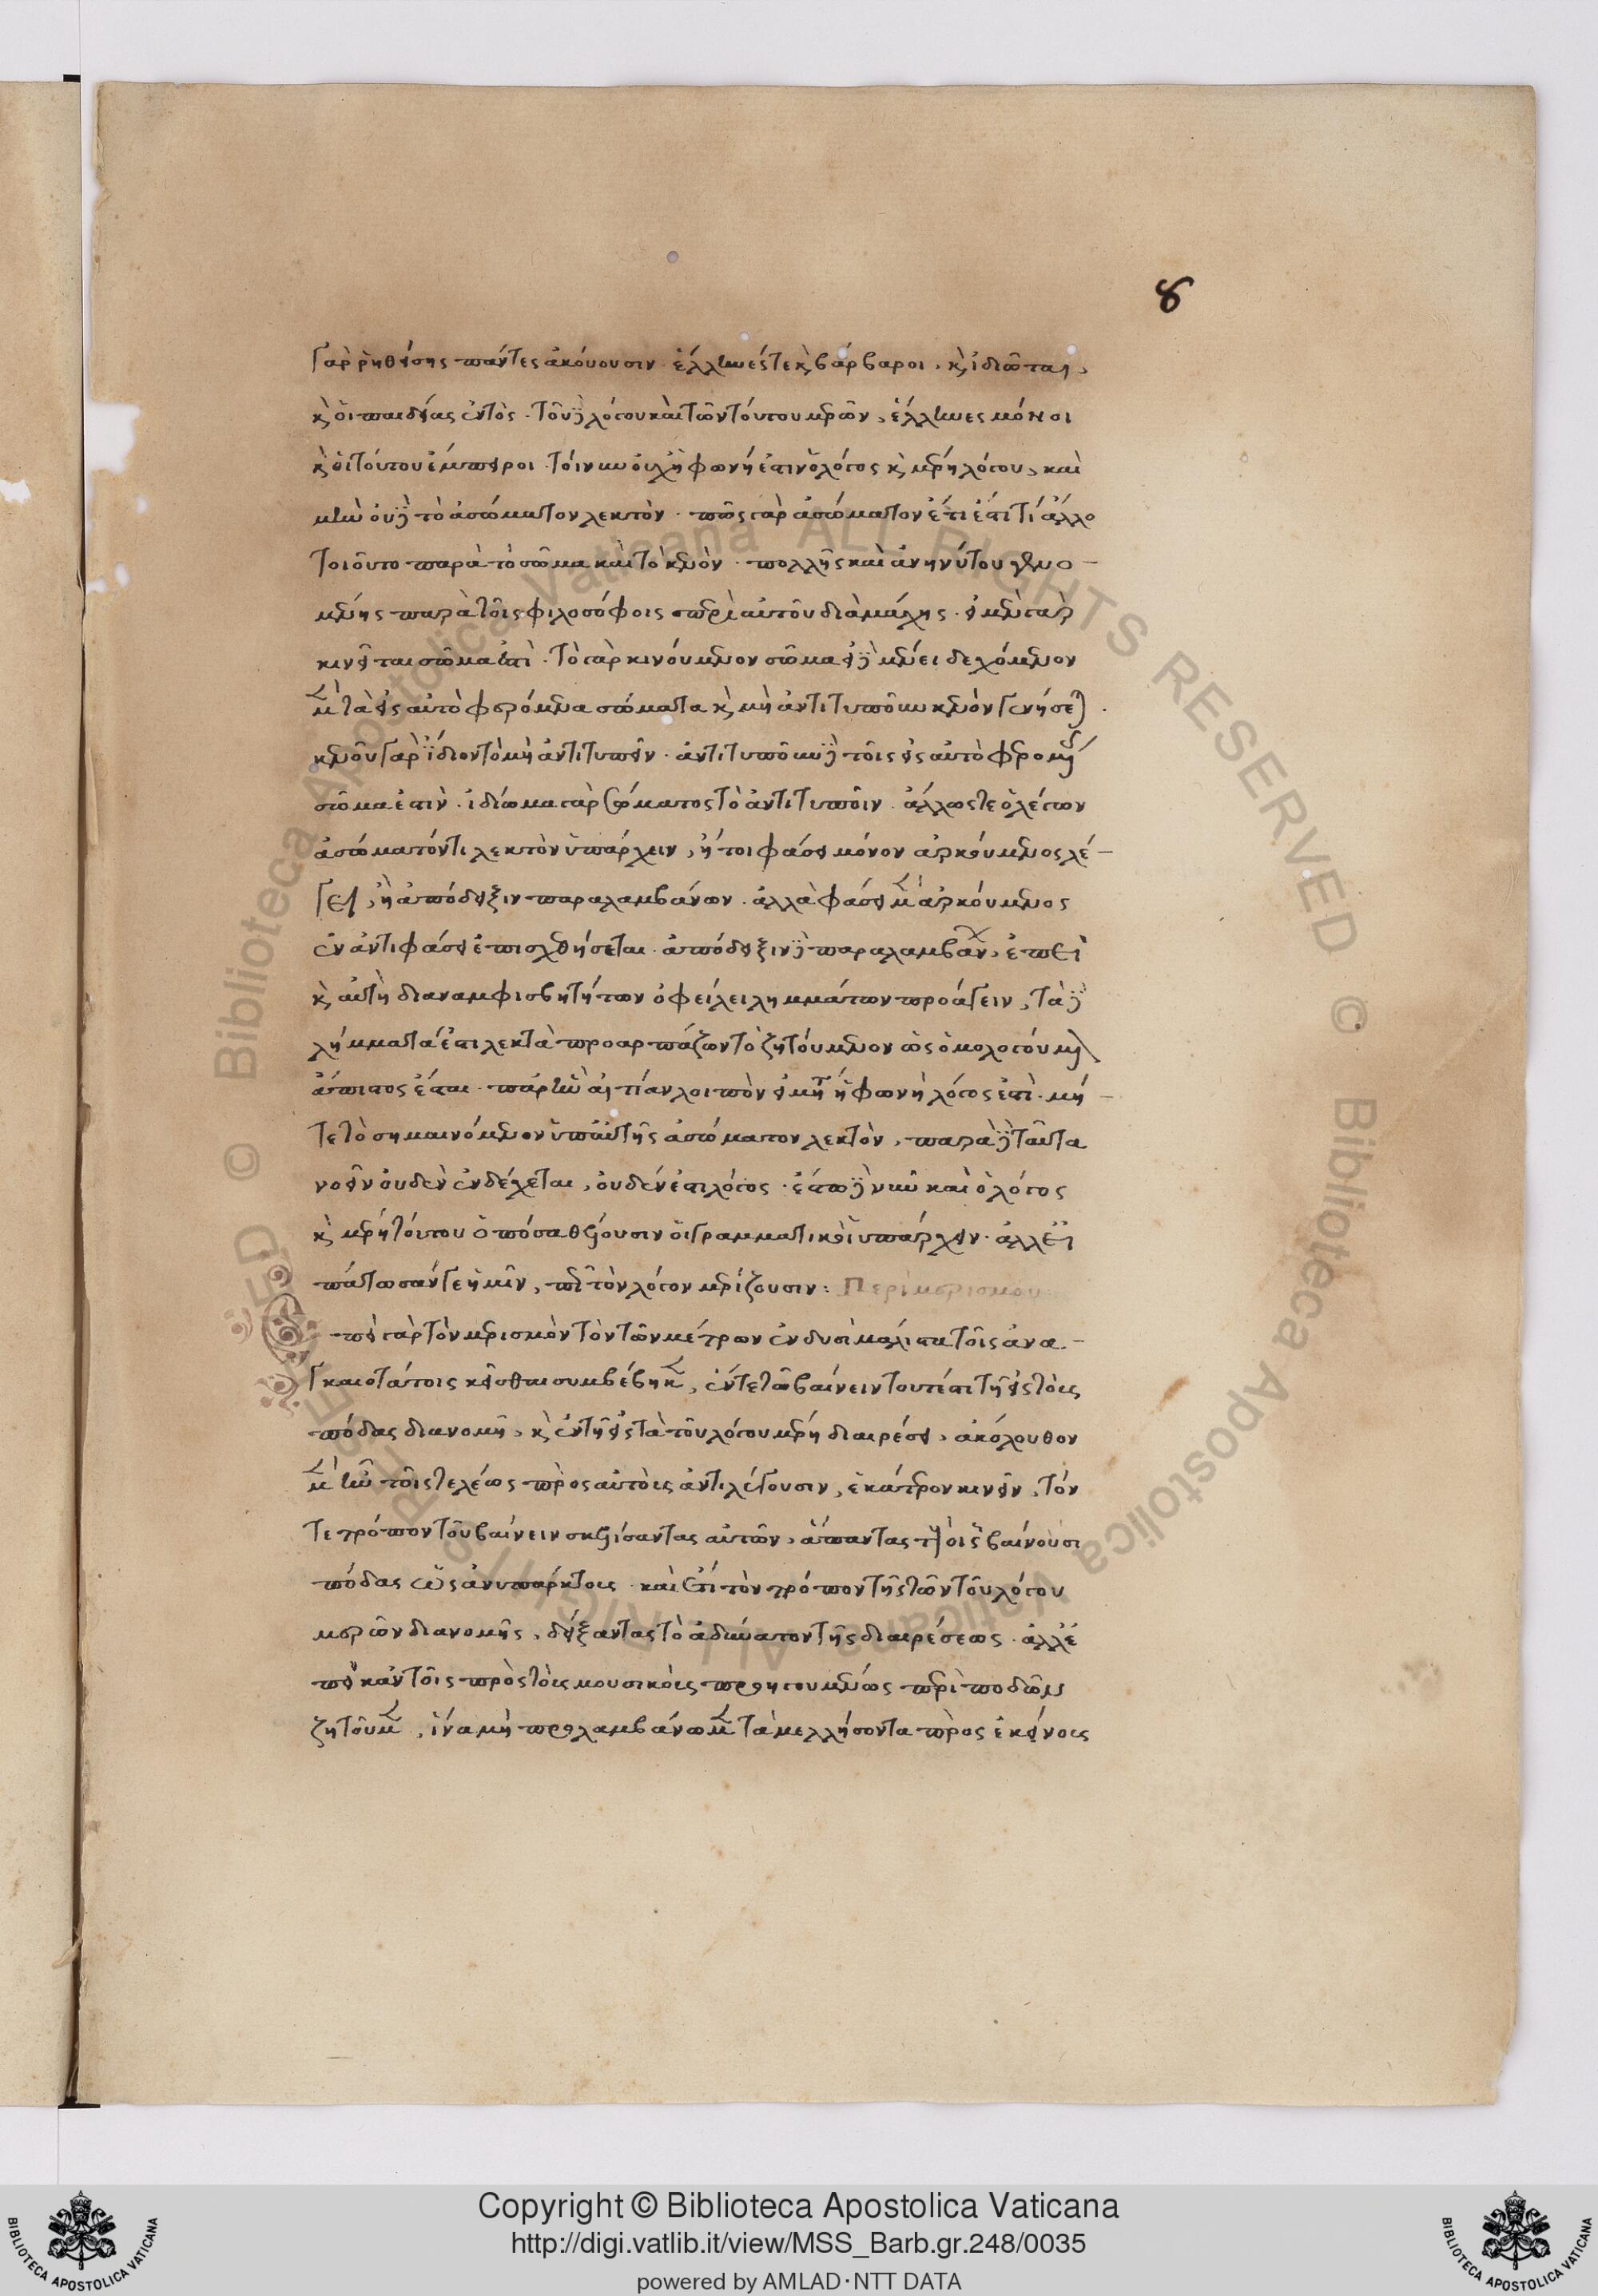 8
γὰρ ῥηθείσης πάντες ἀκούουσιν. ἕλληνές τε κ βάρβαροι, κ ἰδιῶται,
κ οἱ παιδείας ἐντός. τοῦ δὲ λόγου καὶ τῶν τούτου μερῶν, ἕλληνες μόνοι
κ οἱ τούτου ἔμπειροι. τοίνυν οὐχ ἡ φωνή ἐστιν ὁ λόγος κ μέρη λόγου, καὶ
μὴν οὐδὲ τὸ ἀσώματον λεκτόν. πῶς γὰρ ἀσώματον ἔτι ἔστι τί ἄλλο
τοιοῦτο παρὰ τὸ σῶμα καὶ τὸ κενόν. πολλῆς καὶ ἀνηνύτου γενο-
μένης παρὰ τοῖς φιλοσόφοις περὶ αὐτοῦ διαμάχης. εἰ μὲν γὰρ
κινεῖται σῶμα ἐστί. τὸ γὰρ κινούμενον σῶμα εἰ δὲ μένει δεχόμενον
μὲν τὰ εἰς αὐτὸ φερόμενα σώματα κ μὴ ἀντιτυποῦν κενὸν γενήσεται.
κενοῦ γὰρ ἴδιον τὸ μὴ ἀντιτυπεῖν. ἀντιτυποῦν δὲ τοῖς εἰς αὐτὸ φερομένοις
σῶμα ἐστίν. ἰδίωμα γὰρ σώματος τὸ ἀντιτυποῦν. ἄλλως τε ὁ λέγων
ἀσώματόν τι λεκτὸν ὑπάρχειν, ἤτοι φάσει μόνον ἀρκούμενος λέ-
γει, ἢ ἀπόδειξιν παραλαμβάνων. ἀλλὰ φάσει μὲν ἀρκούμενος
ἐν ἀντιφάσει ἐπισχεθήσεται. ἀπόδειξιν δὲ παραλαμβάνων, ἐπεὶ
κ αὐτὴ δι ἀναμφισβητήτων ὀφείλει λημμάτων προάγειν, τὰ δὲ
λήμματά ἐστι λεκτὰ προαρπάζων τὸ ζητούμενον ὡς ὁμολογούμενον
ἄπιστος ἔσται. παρ ἣν αἰτίαν λοιπὸν εἰ μήτε ἡ φωνὴ λόγος ἐστί. μή-
τε τὸ σημαινόμενον ὑπ αὐτῆς ἀσώματον λεκτὸν, παρὰ δὲ ταῦτα
νοεῖν οὐδὲν ἐνδέχεται, οὐδέν ἐστι λόγος. ἔστω δὲ νῦν καὶ ὁ λόγος
κ μέρη τούτου ὁπόσα θέλουσιν οἱ γραμματικοὶ ὑπάρχειν. ἀλλ εἰ
πάτωσάν γε ἡμῖν, πῇ τὸν λόγον μερίζουσιν: Περὶ μερισμοῦ
πεὶ γὰρ τὸν μερισμὸν τὸν τῶν μέτρων ἐν δυσὶ μάλιστα τοῖς ἀνα-
γκαιοτάτοις κεῖσθαι συμβέβηκεν, ἔν τε τῷ βαίνειν τουτέστι τῇ εἰς τοὺς
πόδας διανομῇ, κ ἐν τῇ εἰς τὰ τοῦ λόγου μέρη διαιρέσει, ἀκόλουθον
μὲν ἦν τοῖς τελέως πρὸς αὐτοὺς ἀντιλέγουσιν, ἑκάτερον κινεῖν, τόν
τε τρόπον τοῦ βαίνειν σκυλίσαντας αὐτῶν, ἅπαντας τοὺς οἷς βαίνουσι
πόδας ὡς ἀνυπάρκτους. καὶ ἔτι τὸν τρόπον τῆς τῶν τοῦ λόγου
μερῶν διανομῆς, δείξαντας τὸ ἀδύνατον τῆς διαιρέσεως. ἀλλ ἐ
πεὶ κἀν τοῖς πρὸς τοὺς μουσικοὺς προηγουμένως περὶ ποδῶν
ζητοῦμεν, ἵνα μὴ προλαμβάνωμεν τὰ μελλήσοντα πρὸς ἐκείνους
© Biblioteca Apostolica Vaticana ALL RIGHTS RESERVED
Copyright © Biblioteca Apostolica Vaticana
http://digi.vatlib.it/view/MSS_Barb.gr.248/0035
powered by AMLAD·NTT DATA
BIBLIOTECA APOSTOLICA VATICANA
BIBLIOTECA APOSTOLICA VATICANA